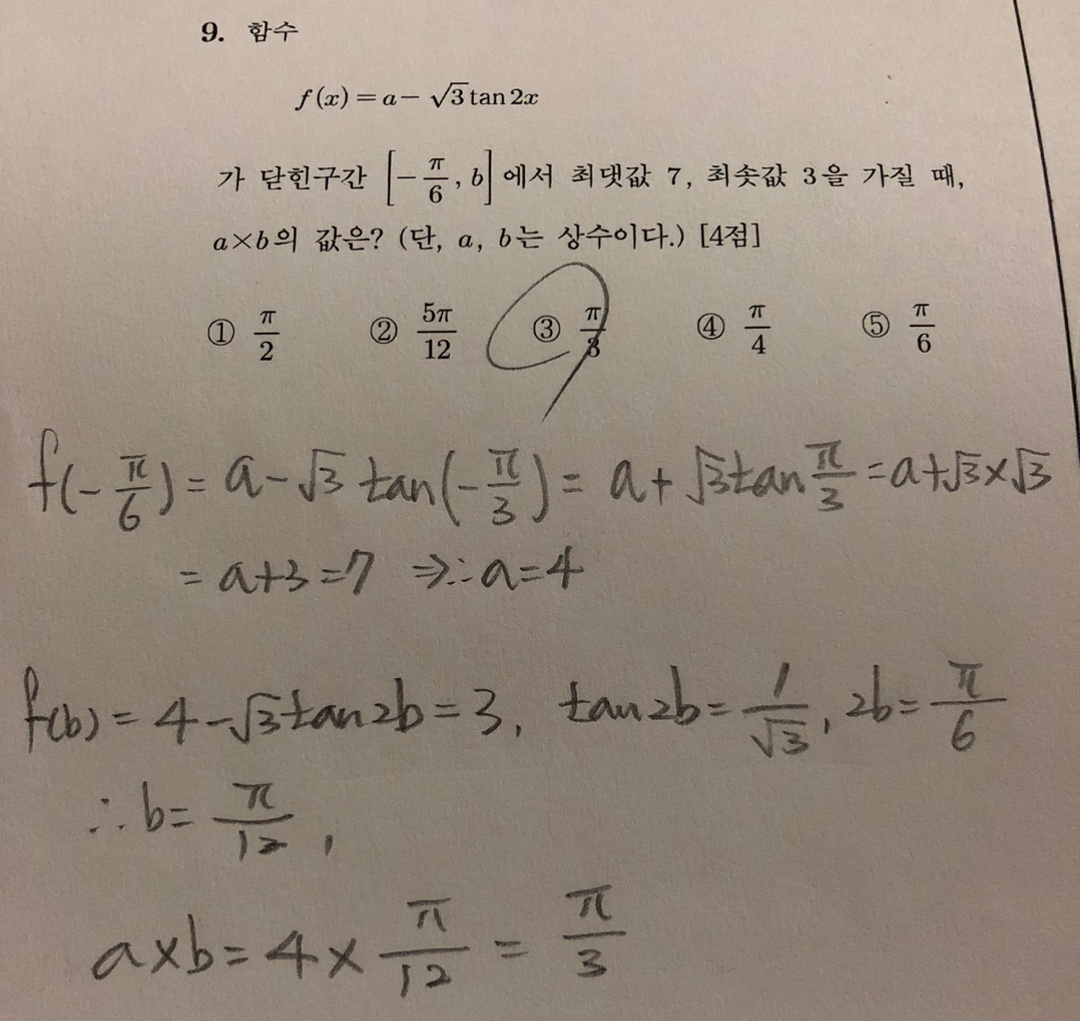 9. 함수
f(x)=a-√3 tan2x
가 닫힌구간 [-π/6, b]에서 최댓값 7, 최솟값 3을 가질 때,
a×b의 값은? (단, a, b는 상수이다.) [4점]
① π/2 ② 5π/12 ③ π/3 ④ π/4 ⑤ π/6
f(-π/6) = a-√3 tan(-π/3) = a+√3 tan π/3 = a+√3×√3
= a+3=7 ⇒∴a=4
f(b) = 4-√3 tan2b=3, tan2b=1/√3, 2b=π/6
∴ b= π/12,
a×b=4×π/12 = π/3